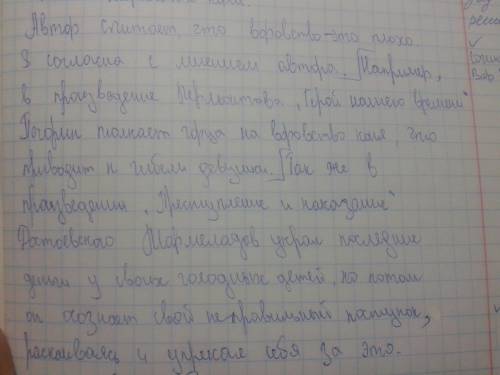 Автор считает, что воровство-это плохо.
Я согласна с мнением автора. Например,
в произведение Лермонтова „Герой нашего времени"
Печорин толкает горца на воровство коня, что
приводит к гибели девушки. Так же в
произведении „Преступление и наказание"
Достоевского Мармеладов украл последние
деньги у своих голодных детей, но потом
он осознает свой не правильный поступок,
раскаиваясь и упрекая себя за это.